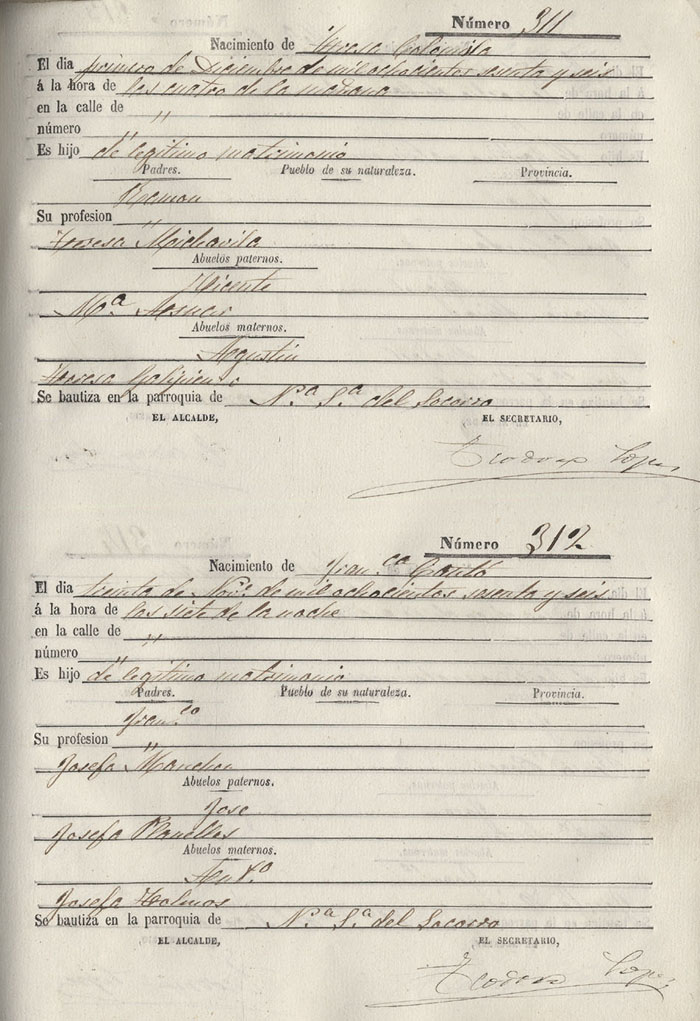 Número 311
Nacimiento de Teresa Colomita
El dia primero de Diciembre de mil ochocientos sesenta y seis
á la hora de las cuatro de la mañana
en la calle de "
número "
Es hijo de legitimo matrimonio
Padres. Pueblo de su naturaleza. Provincia.
Ramon
Su profesion "
Teresa Moichavila
Abuelos paternos.
Vicente
Mª
Abuelos maternos.
Agustin
Teresa
Se bautiza en la parroquia de N.ª S.ª del Socorro
EL ALCALDE, EL SECRETARIO,
Teodoro Lopez
Número 312
Nacimiento de Fran.ca Cantó
El dia treinta de Nov.e de mil ochocientos sesenta y seis
á la hora de las siete de la noche
en la calle de "
número "
Es hijo de legitimo matrimonio
Padres. Pueblo de su naturaleza. Provincia.
Fran.co
Su profesion "
Josefa Manchon
Abuelos paternos.
Jose
Josefa Planelles
Abuelos maternos.
Ant.o
Josefa
Se bautiza en la parroquia de N.ª S.ª del Socorro
EL ALCALDE, EL SECRETARIO,
Teodoro Lopez